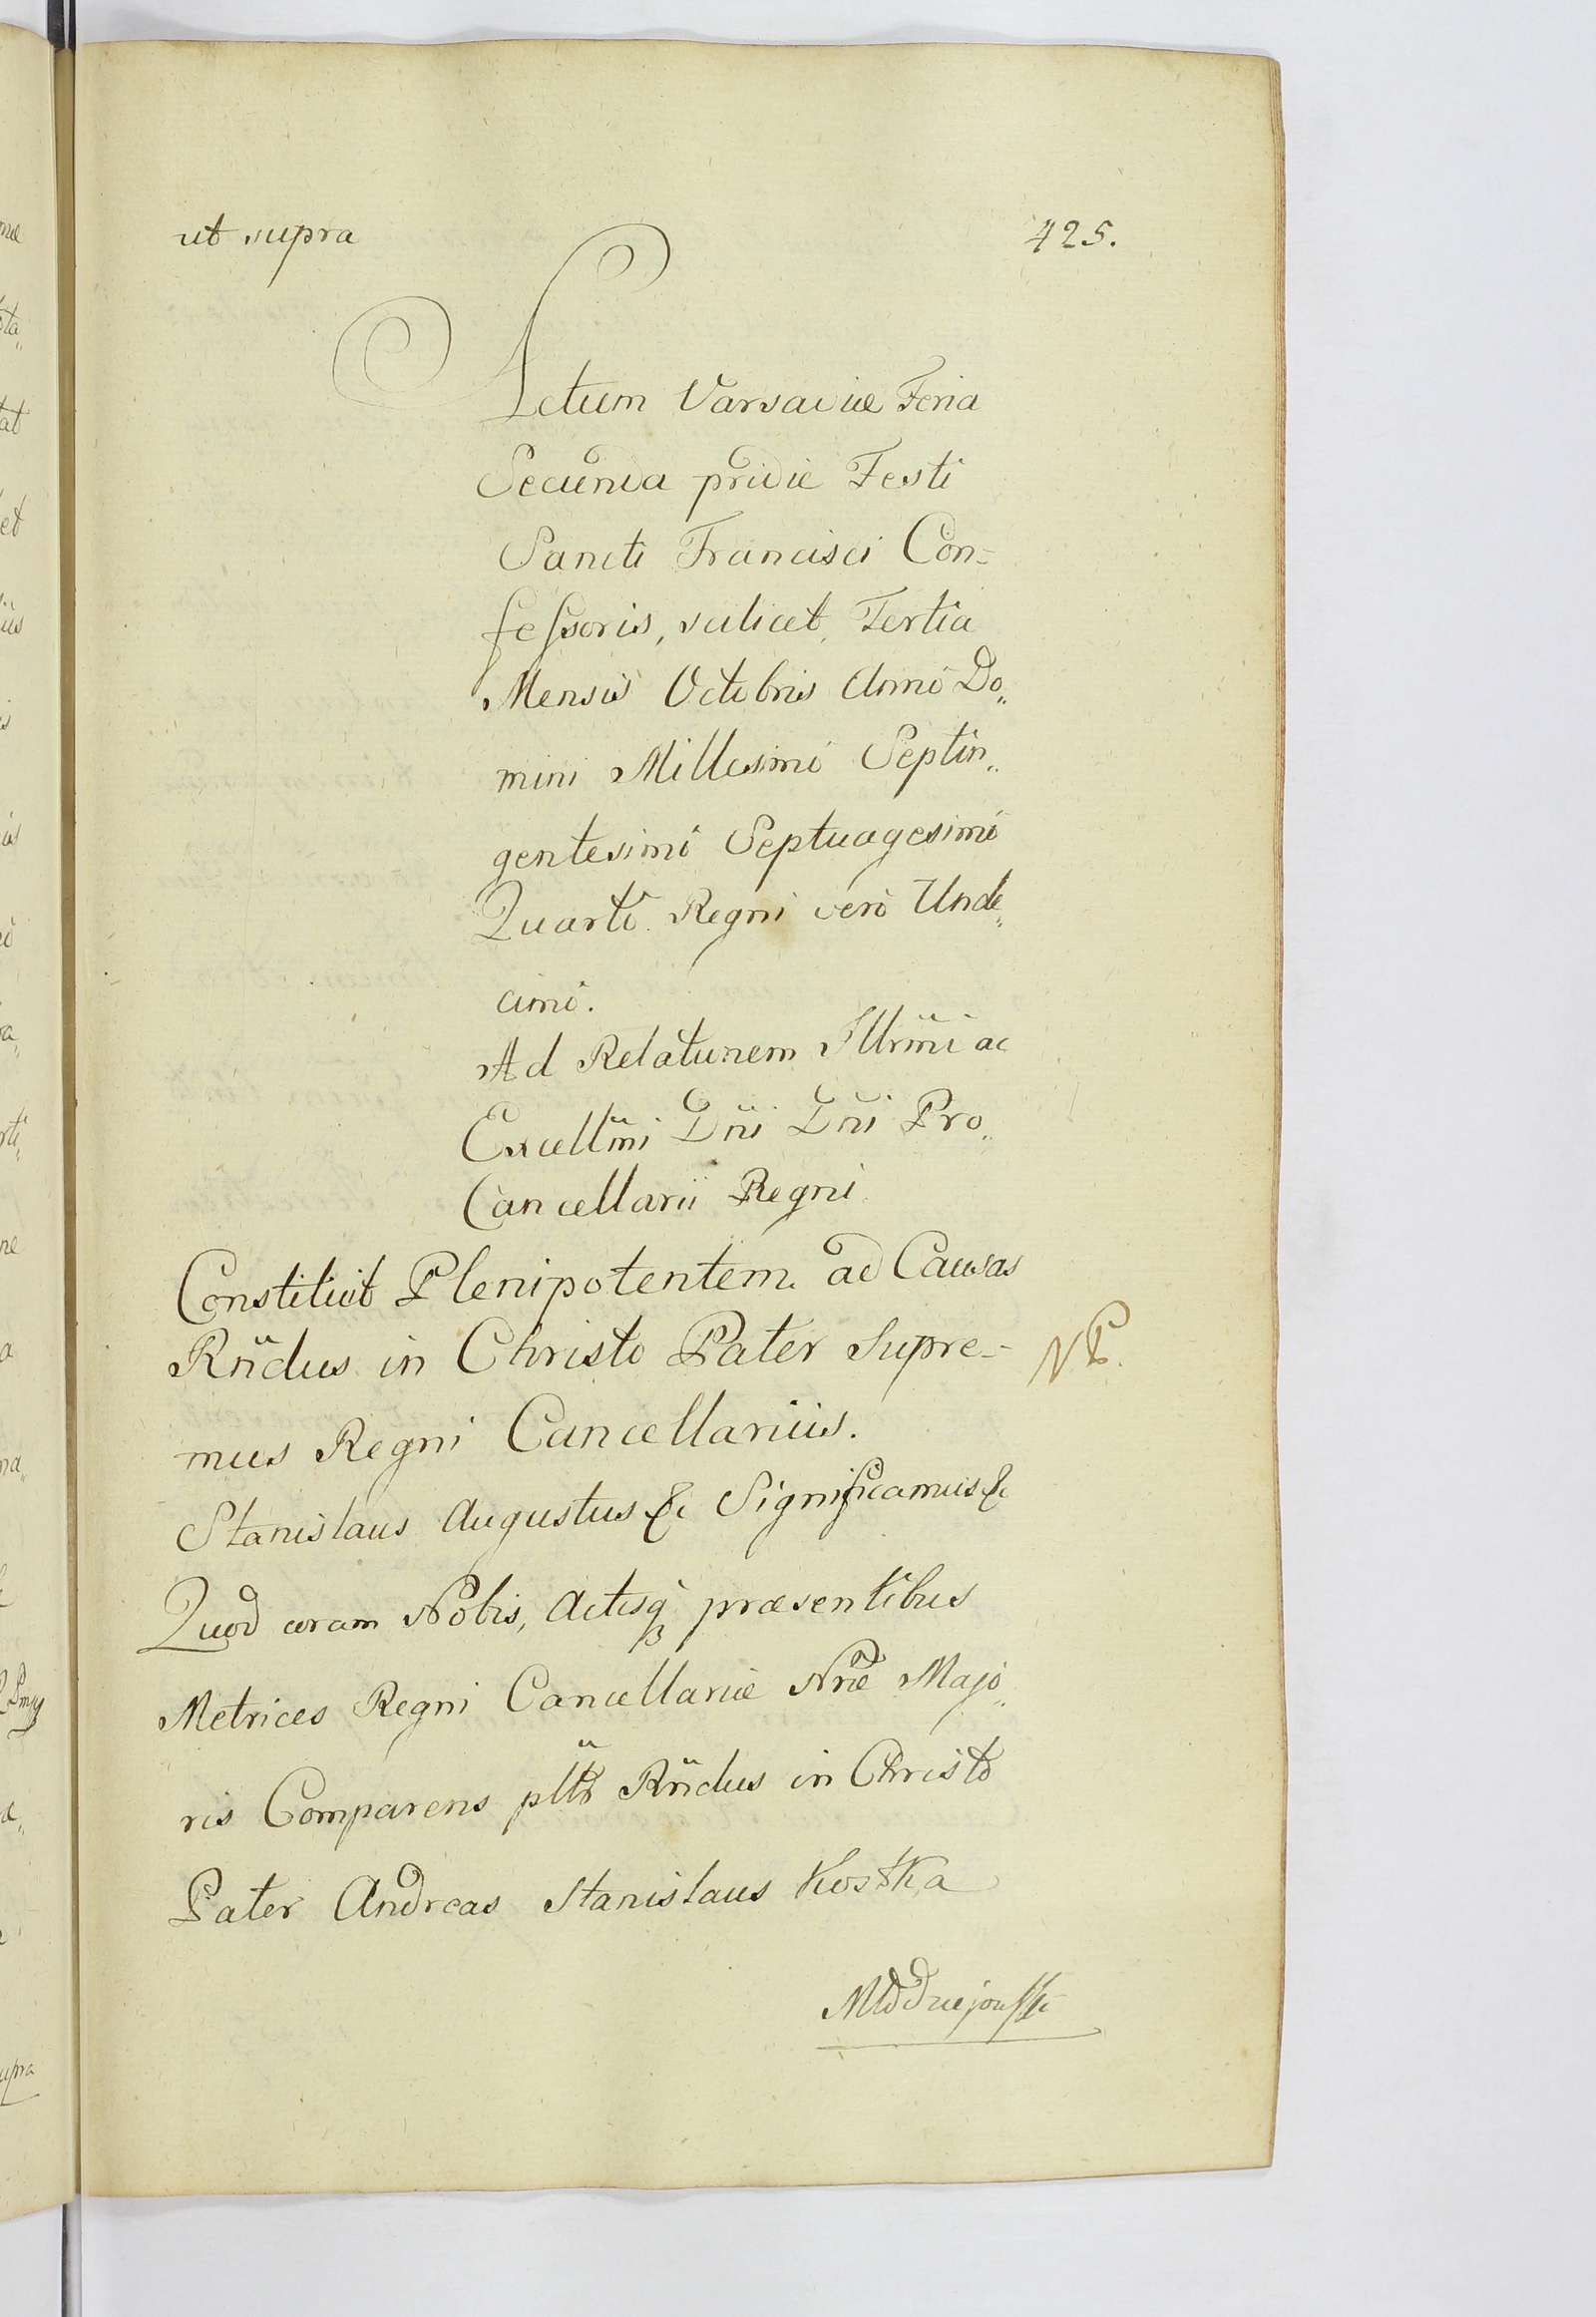 ut supra 425.
Actum Varsaviæ Feria
Secunda pridie Festi
Sancti Francisci Con=
fessoris, scilicet, Tertia
Mensis Octobris Anno Do„
mini Millesimo Septin„
gentesimo Septuagesimo
Quarto. Regni vero Unde„
cimo.
Ad Relationem Illrm̃i ac
Excellm̃i Dñi Dñi Pro„
Cancellarii Regni
Constituit Plenipotentem ad Causas
Rñdus in Christo Pater Supre=
mus Regni Cancellarius.
Stanislaus Augustus &c Significamus &c
Quod coram Nobis, Actisq́ præsentibus
Metrices Regni Cancellariæ Nræ Majo„
ris Comparens pltr̃ Rñdus in Christo
Pater Andreas Stanislaus Kostka